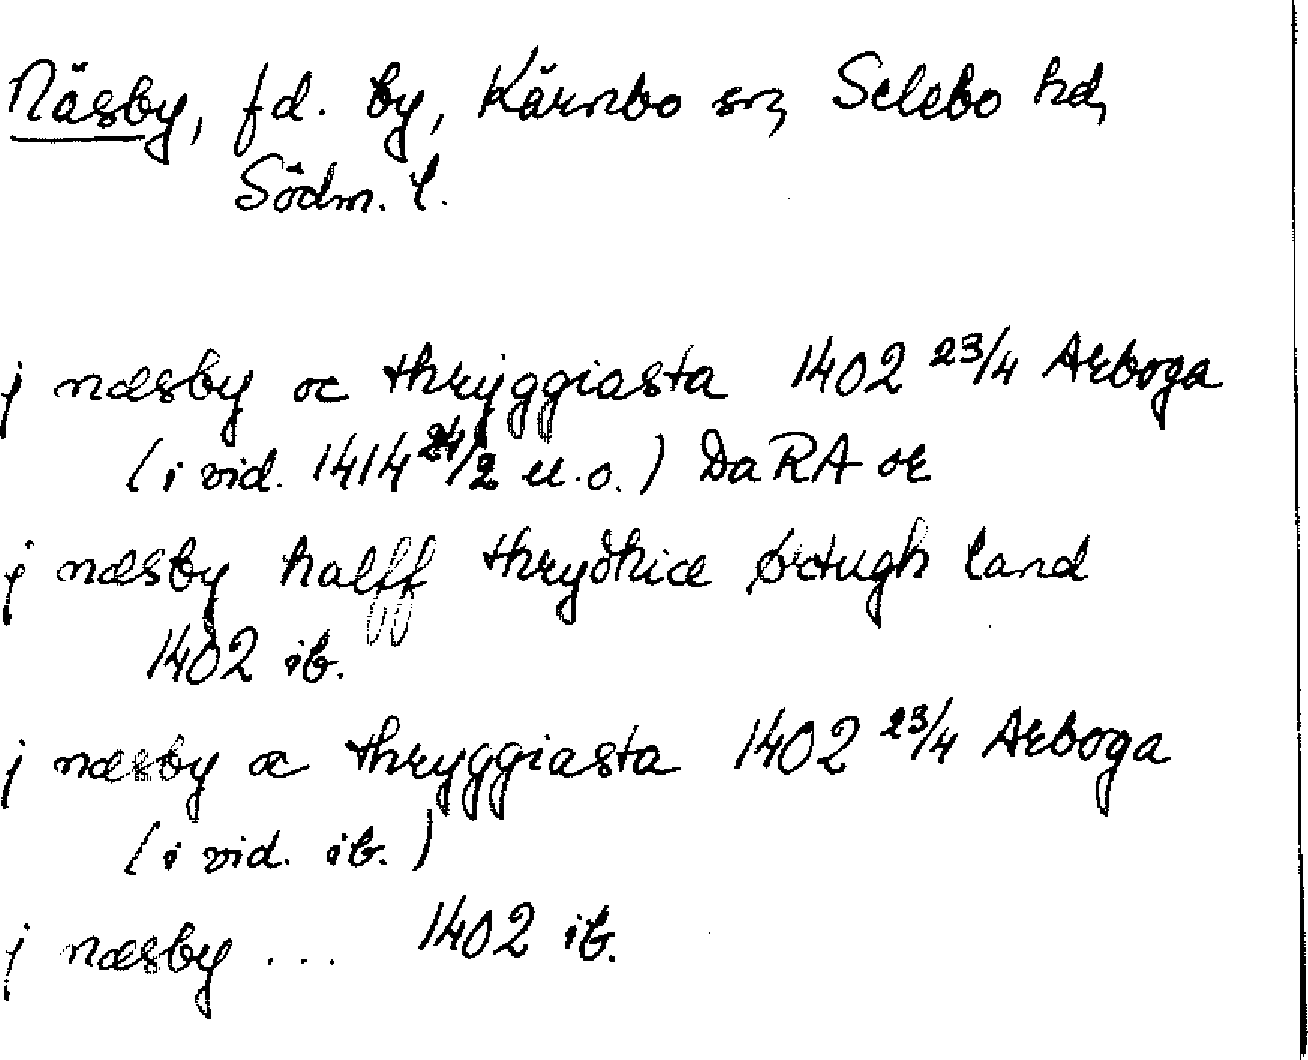 Näsby, fd. by, Kärnbo sn, Selebo hd,
Södm. l.
j næsby oc thryggiasta 1402 23/4 Arboga
(i vid. 1414 24/2 u.o.) DaRA or
j næsby halff thrydhice ørtugh land
1402 ib.
j næsby oc thryggiasta 1402 23/4 Arboga
(i vid. ib.)
j næsby ... 1402 ib.